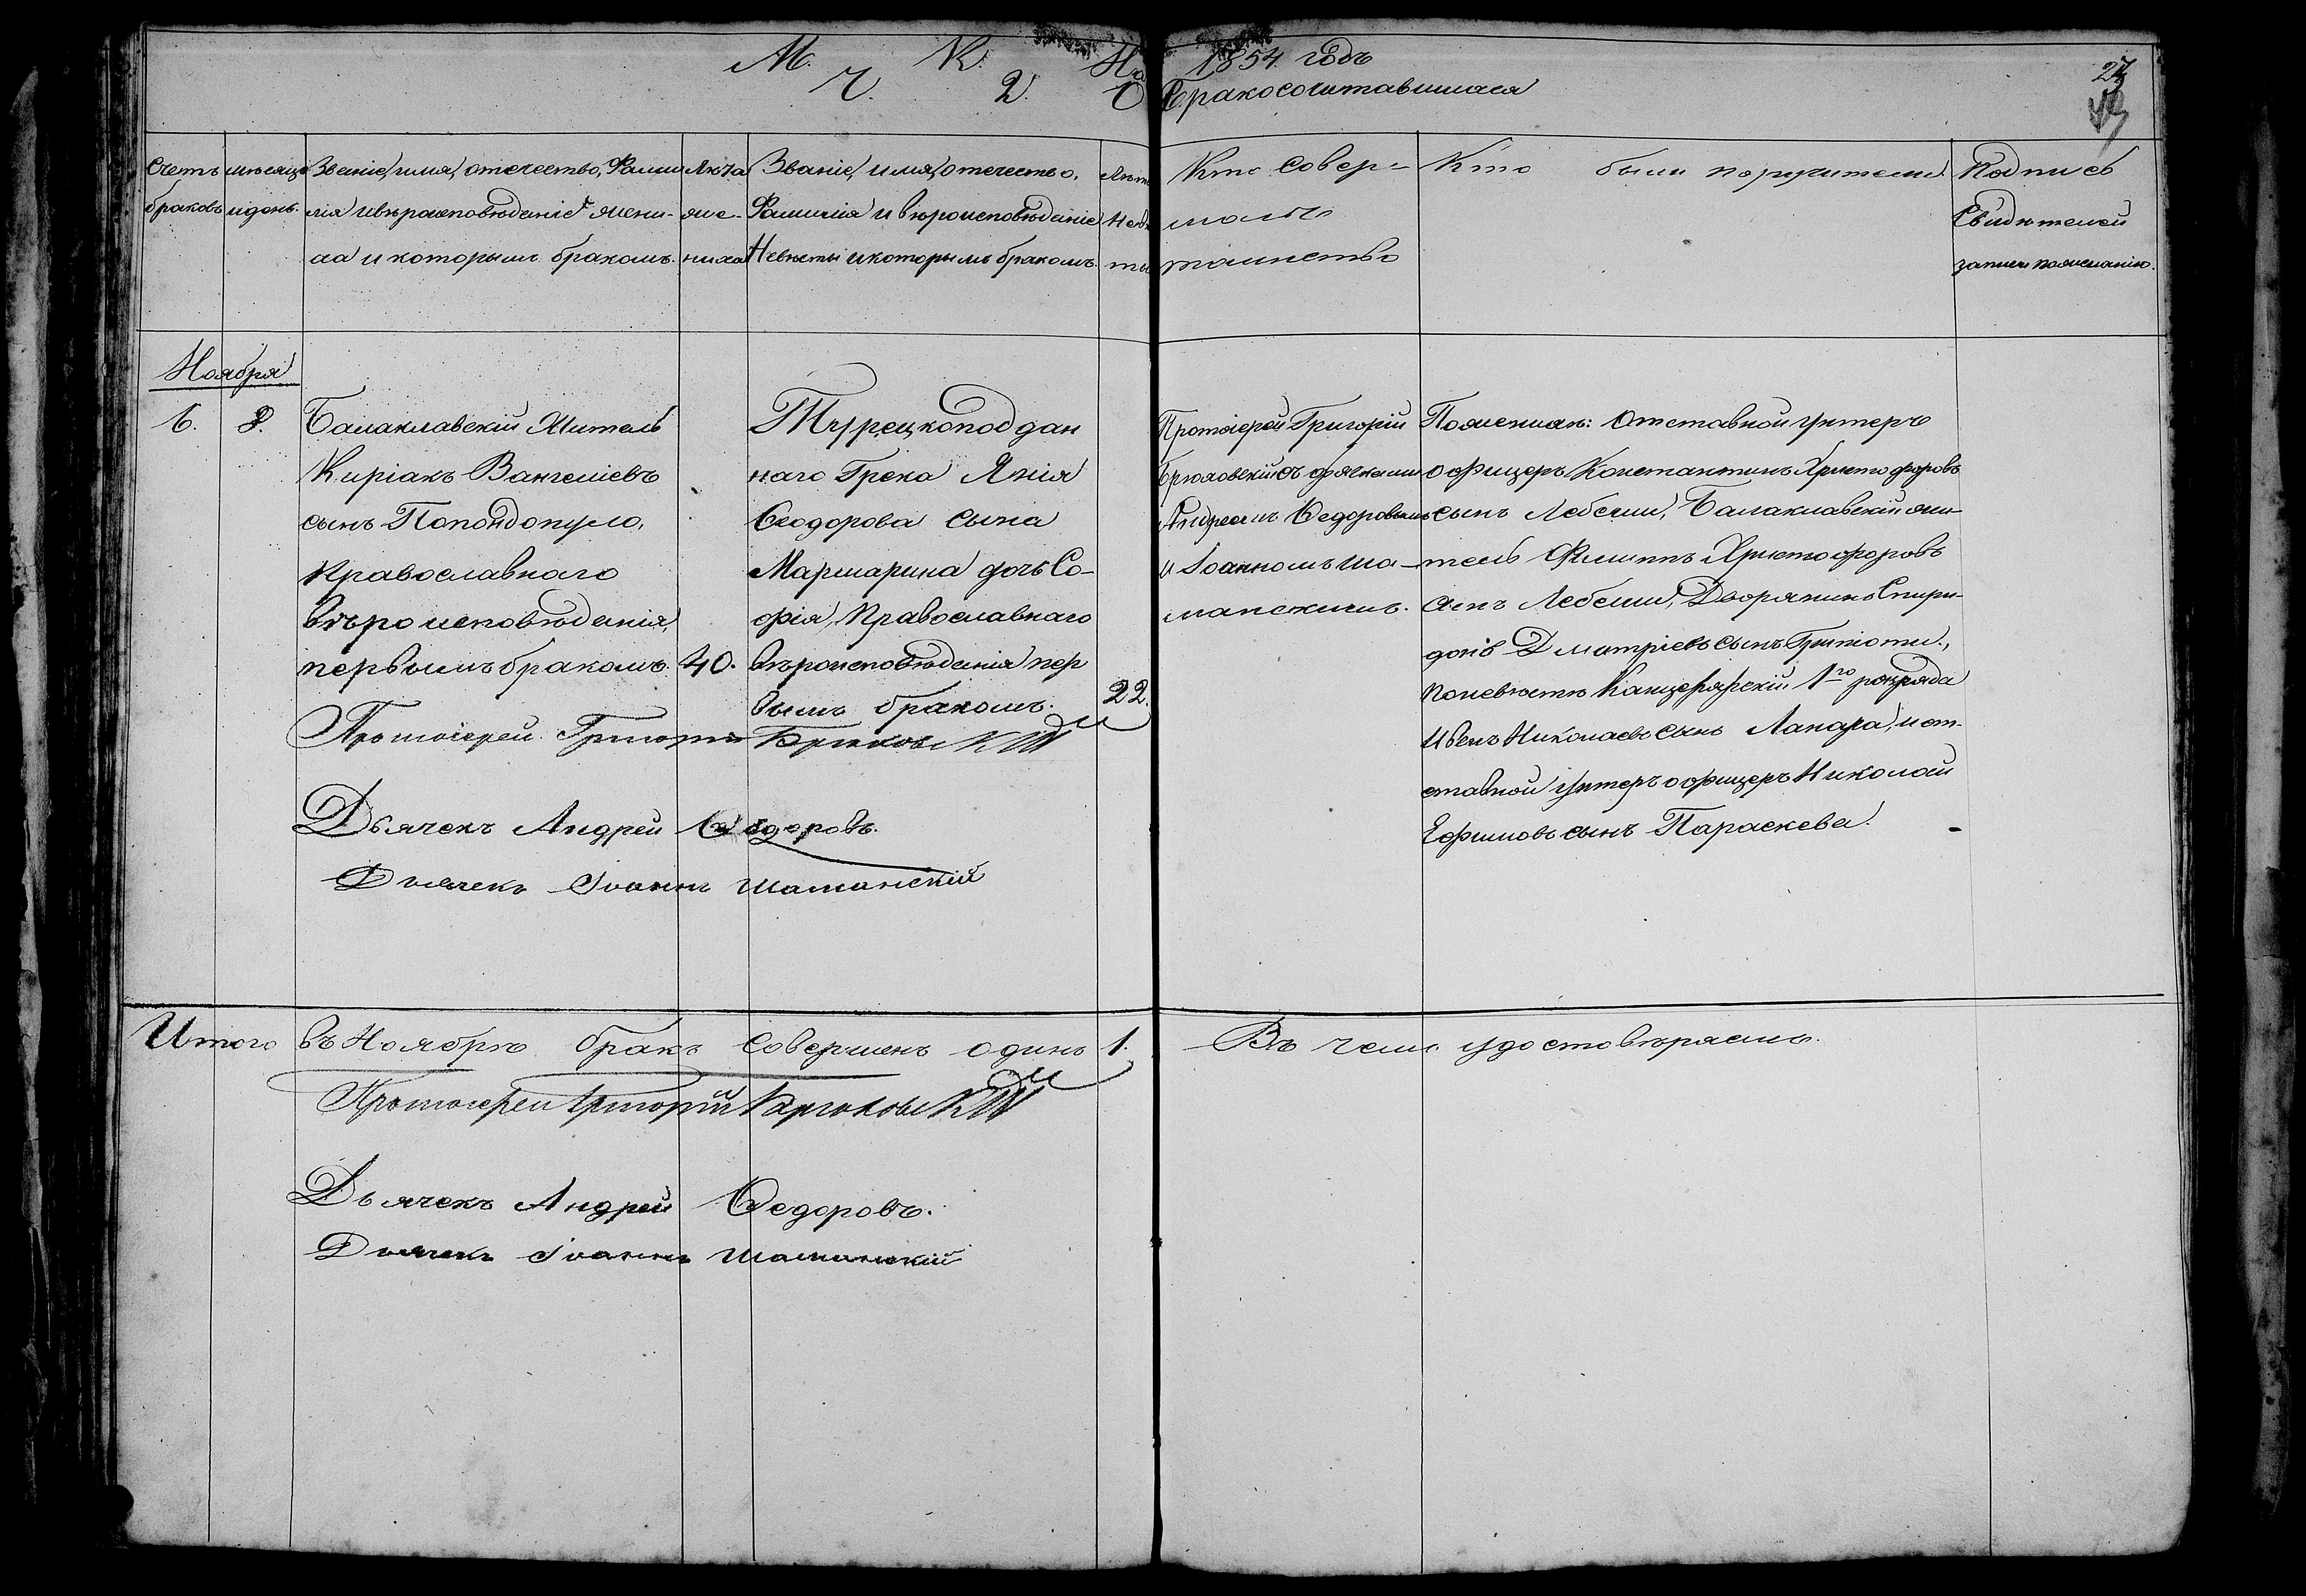 М. К. На 1854 годъ
Ч. 2. О Бракосочитавшихся
27
Счетъ браковъ
мѣсяцъ и день
Званіе, имя, отечество, Фами
лія и вѣроисповѣданіе жени-
ха и которымъ бракомъ.
Лѣта
же-
ниха
Званіе, имя, отечество,
Фамилія и вѣроисповѣданіе
Невѣсты и которымъ бракомъ.
Лѣта
Невѣ
сты
Кто совер-
шалъ
таинство
Кто были поручители
Подпись
Свидѣтелей
записи по желанію.
Ноября
6. 8.
Балаклавскій Житель
Киріакъ Вангеліевъ
сынъ Попондопуло,
православнаго
вѣроисповѣданія,
первымъ бракомъ.
40.
Турецкоподдан
наго Грека Янія
Ѳеодорова сына
Мармарина дочь Со-
фія, Православнаго
вѣроисповѣданія пер
вымъ бракомъ.
22.
Протоіерей Григорій
Брюховскій съ дьячками
Андреемъ Ѳедоровымъ
и Іоанномъ Ша-
манскимъ.
По женихѣ: Отставной унтеръ
офицеръ Константинъ Христофоровъ
сынъ Лебези, Балаклавскій жи-
тель Филиппъ Христофоровъ
сынъ Лебези, Дворянинъ Спири-
донъ Дмитріевъ сынъ
по невѣстѣ Канцелярскій 1го разряда
Иванъ Николаевъ сынъ Лапара, и от-
ставной унтеръ офицеръ Николай
Ефимовъ сынъ Параскева.
Протоіерей Григорій
Дьячекъ Андрей Ѳедоровъ.
Дьячекъ Іоаннъ Шаманскій
Итого въ Ноябрѣ бракъ совершенъ одинъ 1.
Въ чемъ удостовѣряемъ.
Протоіерей Григорій
Дьячекъ Андрей Ѳедоровъ.
Дьячекъ Іоаннъ Шаманскій